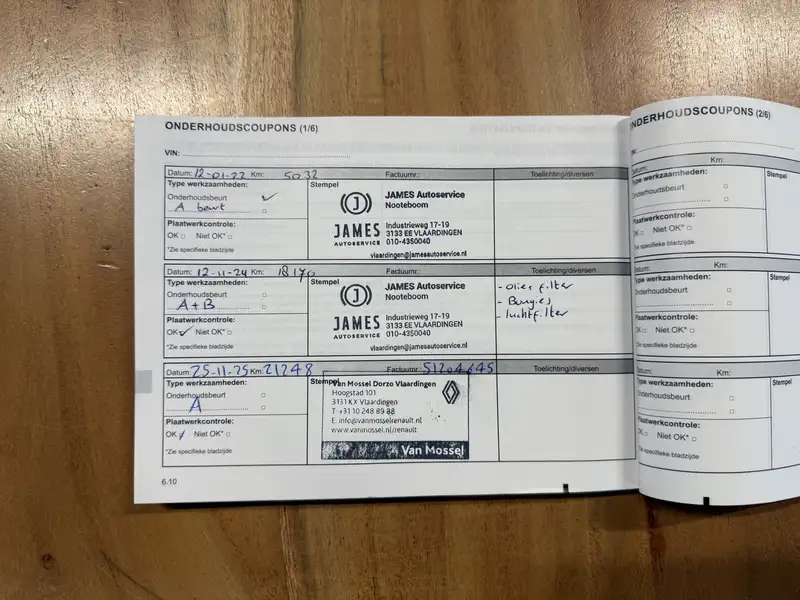 ONDERHOUDSCOUPONS (1/6)
VIN:
Datum: 12-01-22 Km: 5032 Factuurnr.: Toelichting/diversen
Type werkzaamheden: Stempel
Onderhoudsbeurt
A beurt
Plaatwerkcontrole:
OK Niet OK*
*Zie specifieke bladzijde
JAMES Autoservice
Nooteboom
JAMES
AUTOSERVICE
Industrieweg 17-19
3133 EE VLAARDINGEN
010-4350040
vlaardingen@jamesautoservice.nl
Datum: 12-11-24 Km: 18170 Factuurnr.: Toelichting/diversen
Type werkzaamheden: Stempel
Onderhoudsbeurt
A+B
Plaatwerkcontrole:
OK Niet OK*
*Zie specifieke bladzijde
JAMES Autoservice
Nooteboom
JAMES
AUTOSERVICE
Industrieweg 17-19
3133 EE VLAARDINGEN
010-4350040
vlaardingen@jamesautoservice.nl
- olier filter
- Bougies
- luchtfilter
Datum: 25-11-25 Km: 21248 Factuurnr.: 51204645 Toelichting/diversen
Type werkzaamheden: Stempel
Onderhoudsbeurt
A
Plaatwerkcontrole:
OK Niet OK*
*Zie specifieke bladzijde
Van Mossel Dorzo Vlaardingen
Hoogstad 101
3131 KX Vlaardingen
T: +31 10 248 89 88
E: info@vanmosselrenault.nl
www.vanmossel.nl/renault
Van Mossel
6.10
ONDERHOUDSCOUPONS (2/6)
VIN:
Datum: Km:
Type werkzaamheden: Stempel
Onderhoudsbeurt
Plaatwerkcontrole:
OK Niet OK*
*Zie specifieke bladzijde
Datum: Km:
Type werkzaamheden: Stempel
Onderhoudsbeurt
Plaatwerkcontrole:
OK Niet OK*
*Zie specifieke bladzijde
Datum: Km:
Type werkzaamheden: Stempel
Onderhoudsbeurt
Plaatwerkcontrole:
OK Niet OK*
*Zie specifieke bladzijde